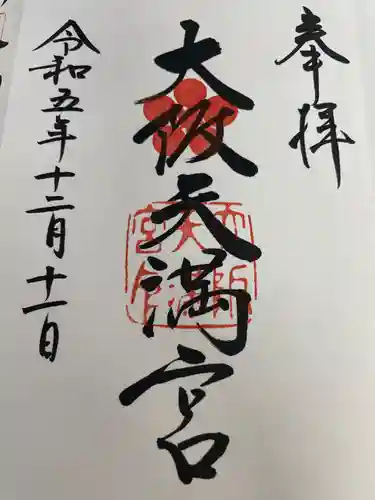 奉拝
大阪天満宮
令和五年十二月十一日